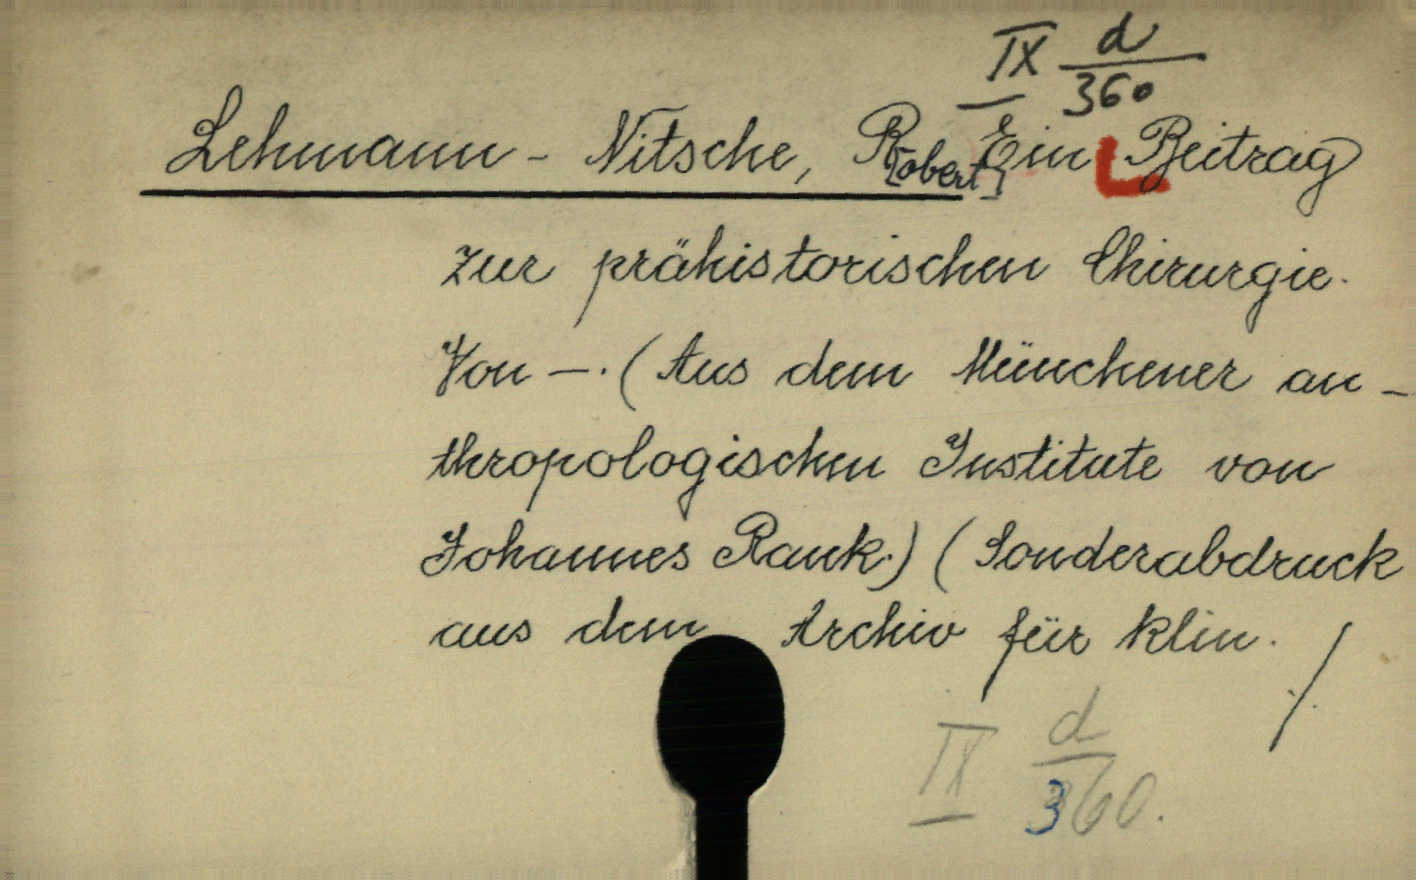 IX d/360
Lehmann-Nitsche, R[obert] Ein Beitrag
zur prähistorischen Chirurgie.
Von —. (Aus dem Münchener an-
thropologischen Institute von
Johannes Rank.) (Sonderabdruck
aus dem Archiv für klin. ./.
IX d/360.